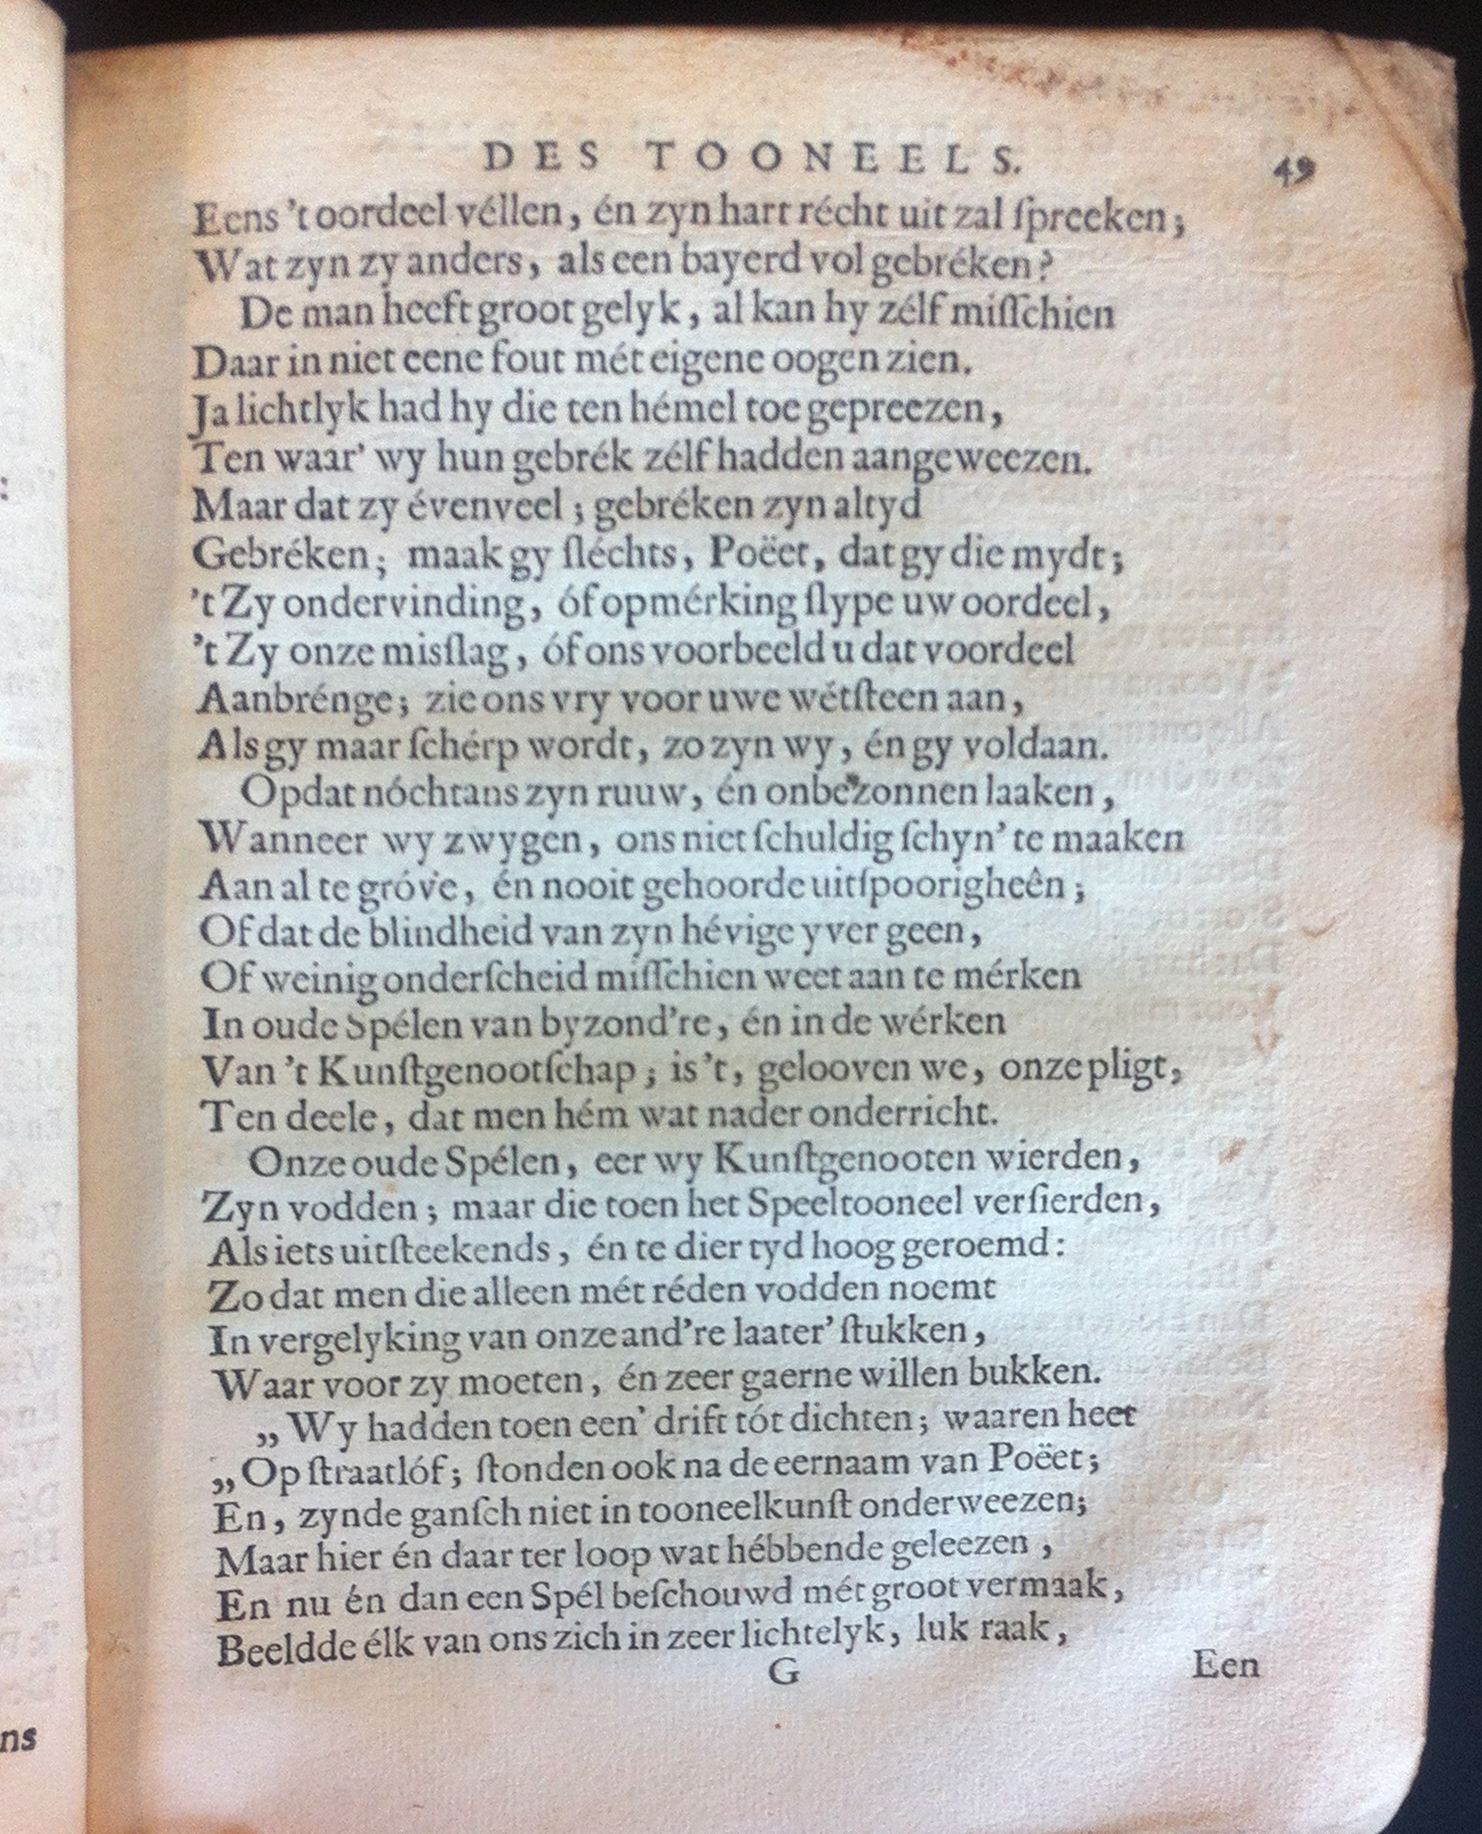 DES TOONEELS. 49
Eens 't oordeel véllen, én zyn hart récht uit zal ſpreeken;
Wat zyn zy anders, als een bayerd vol gebréken?
De man heeft groot gelyk, al kan hy zélf miſſchien
Daar in niet eene fout mét eigene oogen zien.
Ja lichtlyk had hy die ten hémel toe gepreezen,
Ten waar' wy hun gebrék zélf hadden aangeweezen.
Maar dat zy évenveel; gebréken zyn altyd
Gebréken; maak gy ſléchts, Poëet, dat gy die mydt;
't Zy ondervinding, óf opmérking ſlype uw oordeel,
't Zy onze misſlag, óf ons voorbeeld u dat voordeel
Aanbrénge; zie ons vry voor uwe wétſteen aan,
Als gy maar ſchérp wordt, zo zyn wy, én gy voldaan.
Opdat nóchtans zyn ruuw, én onbezonnen laaken,
Wanneer wy zwygen, ons niet ſchuldig ſchyn' te maaken
Aan al te gróve, én nooit gehoorde uitſpoorigheên;
Of dat de blindheid van zyn hévige yver geen,
Of weinig onderſcheid miſſchien weet aan te mérken
In oude Spélen van byzond're, én in de wérken
Van 't Kunſtgenootſchap; is 't, gelooven we, onze pligt,
Ten deele, dat men hém wat nader onderricht.
Onze oude Spélen, eer wy Kunſtgenooten wierden,
Zyn vodden; maar die toen het Speeltooneel verſierden,
Als iets uitſteekends, én te dier tyd hoog geroemd:
Zo dat men die alleen mét réden vodden noemt
In vergelyking van onze and're laater' ſtukken,
Waar voor zy moeten, én zeer gaerne willen bukken.
„ Wy hadden toen een' drift tót dichten; waaren heet
„ Op ſtraatlóf; ſtonden ook na de eernaam van Poëet;
En, zynde ganſch niet in tooneelkunſt onderweezen;
Maar hier én daar ter loop wat hébbende geleezen,
En nu én dan een Spél beſchouwd mét groot vermaak,
Beeldde élk van ons zich in zeer lichtelyk, luk raak,
G Een
ns